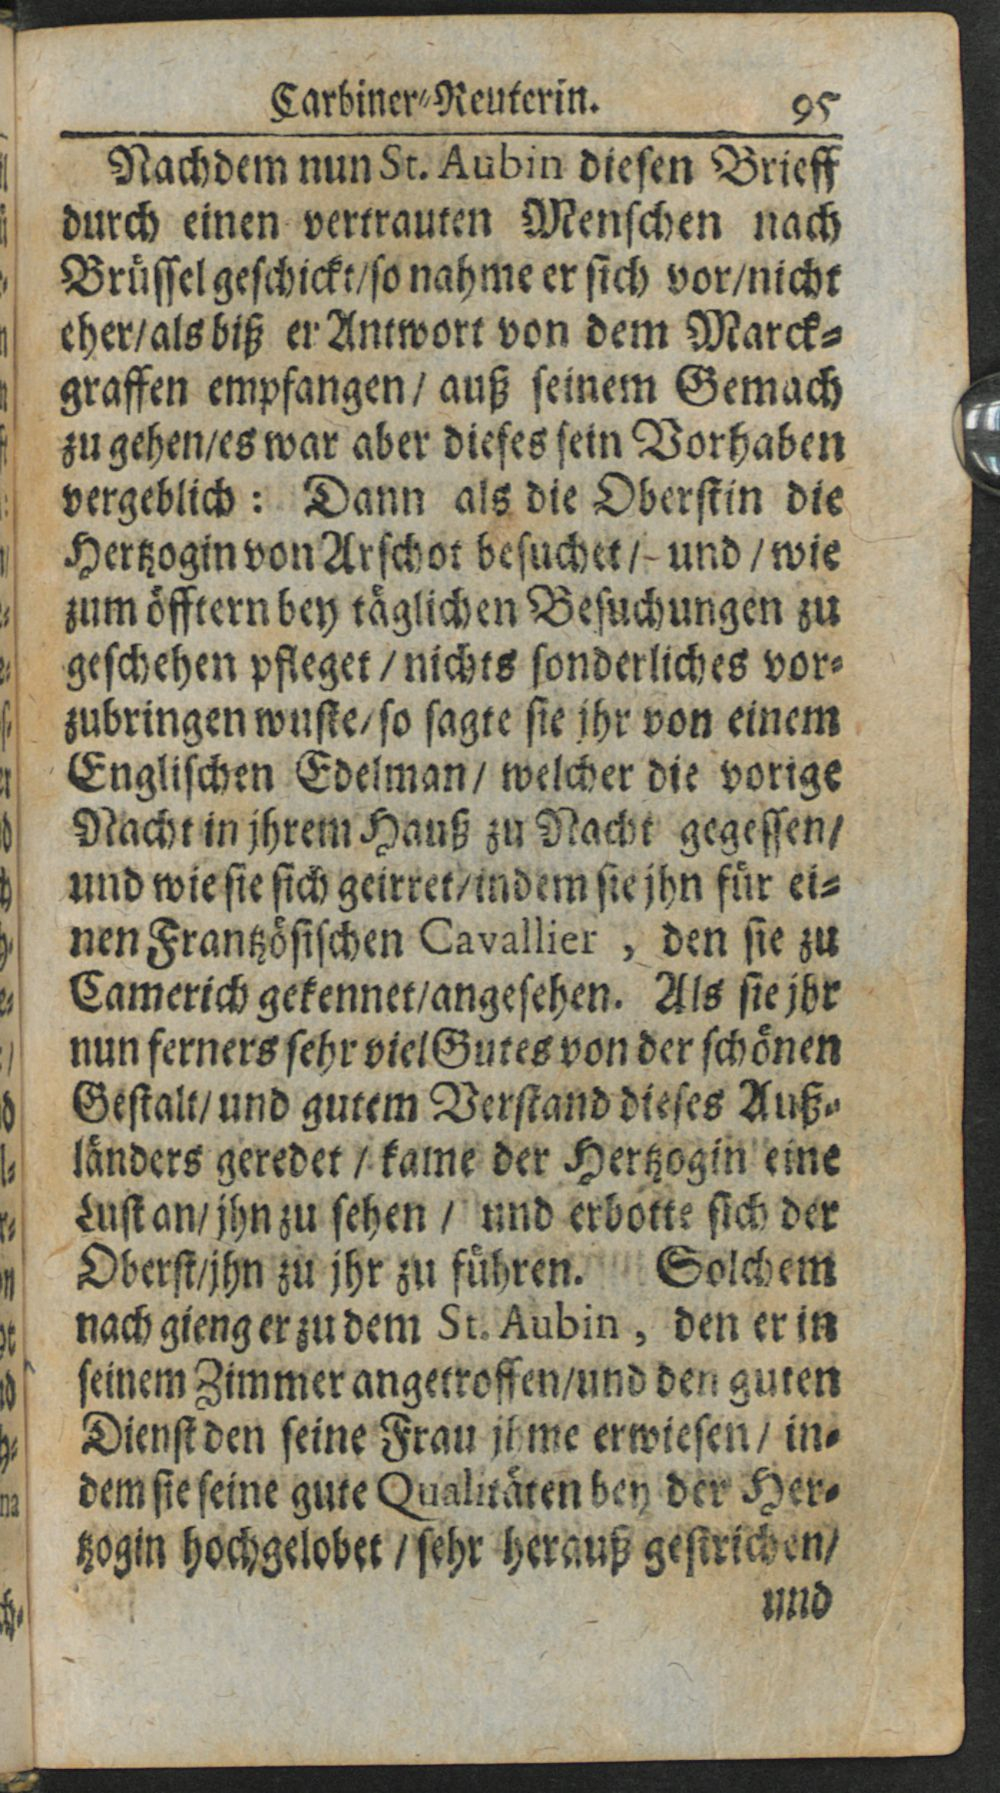 Carbiner-Reuterin. 95
Nachdem nun St. Aubin diesen Brieff
durch einen vertrauten Menschen nach
Brüssel geschickt/so nahme er sich vor/nicht
eher/als biß er Antwort von dem Marck-
graffen empfangen/ auß seinem Gemach
zu gehen/es war aber dieses sein Vorhaben
vergeblich: Dann als die Oberstin die
Hertzogin von Arschot besuchet/- und/wie
zum öfftern bey täglichen Besuchungen zu
geschehen pfleget/nichts sonderliches vor-
zubringen wuste/so sagte sie jhr von einem
Englischen Edelman/ welcher die vorige
Nacht in jhrem Hauß zu Nacht gegessen/
und wie sie sich geirret/indem sie jhn für ei-
nen Frantzösischen Cavallier, den sie zu
Camerich gekennet/angesehen. Als sie jhr
nun ferners sehr viel Gutes von der schönen
Gestalt/ und gutem Verstand dieses Auß-
länders geredet/kame der Hertzogin eine
Lust an/jhn zu sehen/ und erbotte sich der
Oberst/jhn zu jhr zu führen. Solchem
nach gieng er zu dem St. Aubin, den er in
seinem Zimmer angetroffen/und den guten
Dienst den seine Frau jhme erwiesen/ in-
dem sie seine gute Qualitäten bey der Her-
tzogin hochgelobet/sehr herauß gestrichen/
und